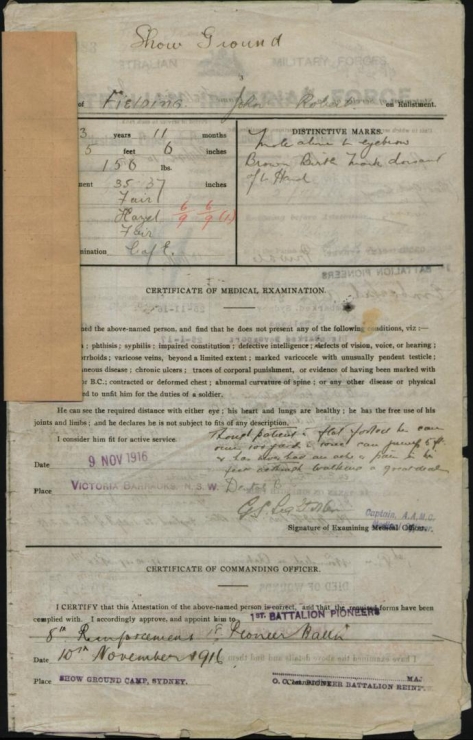 Show Ground
of Fieldings John Robert on Enlistment.
3 years 11 months
5 feet 6 inches
156 lbs.
ment 35-37 inches
Fair
Hazel 6/9 6/9
Fair
mination C of E.
DISTINCTIVE MARKS.
Mole above L eyebrow
Brown Birth Mark dorsum
of L Hand
1ST BATTALION PIONEERS
CERTIFICATE OF MEDICAL EXAMINATION.
ned the above-named person, and find that he does not present any of the following conditions, viz:—
phthisis; syphilis; impaired constitution; defective intelligence; defects of vision, voice, or hearing;
orrhoids; varicose veins, beyond a limited extent; marked varicocele with unusually pendent testicle;
aneous disease; chronic ulcers; traces of corporal punishment, or evidence of having been marked with
or B.C.; contracted or deformed chest; abnormal curvature of spine; or any other disease or physical
d to unfit him for the duties of a soldier.
He can see the required distance with either eye; his heart and lungs are healthy; he has the free use of his
joints and limbs; and he declares he is not subject to fits of any description.
I consider him fit for active service.
Though patient is flat footed he can
Date 9 NOV 1916
Place VICTORIA BARRACKS N.S.W.
Captain, A.A.M.C.
Signature of Examining Medical Officer.
CERTIFICATE OF COMMANDING OFFICER.
I CERTIFY that this Attestation of the above-named person is correct, and that the required forms have been
complied with. I accordingly approve, and appoint him to 1ST. BATTALION PIONEERS
8th Reinforcements 1st Pioneer Battn
Date 10th November 1916
MAJ
Place SHOW GROUND CAMP, SYDNEY.
O. C. PIONEER BATTALION REINF